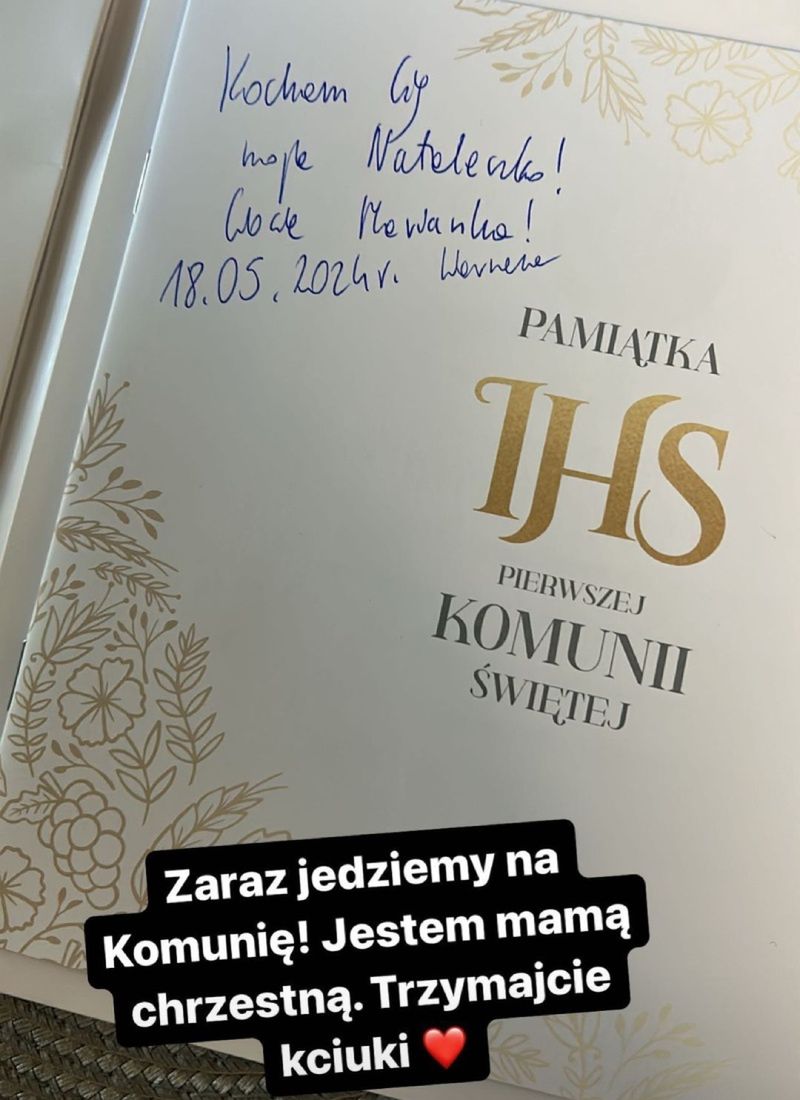 Kocham Cię
moja Nataleczko!
Ciocia Marianka!
18.05.2024r.
PAMIĄTKA
IHS
PIERWSZEJ
KOMUNII
ŚWIĘTEJ
Zaraz jedziemy na
Komunię! Jestem mamą
chrzestną. Trzymajcie
kciuki ❤️